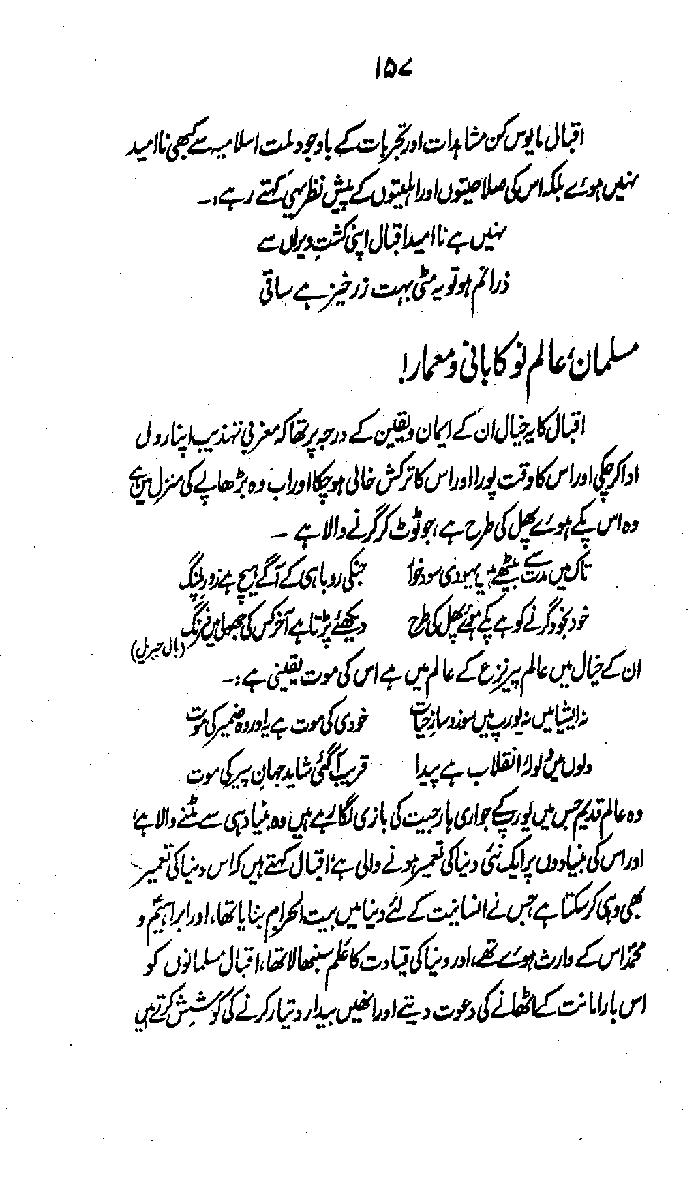 ۱۵۷
اقبال مایوس کن مشاہدات اور تجربات کے باوجود ملت اسلامیہ سے کبھی نا امید
نہیں ہوئے بلکہ اس کی صلاحیتوں اور اہلیتوں کے پیش نظر یہی کہتے رہے:۔
نہیں ہے نا امید اقبال اپنی کشت ویراں سے
ذرا نم ہو تو یہ مٹی بہت زرخیز ہے ساقی
مسلمان‘ عالم نو کا بانی و معمار!
اقبال کا یہ خیال ان کے ایمان و یقین کے درجہ پر تھا کہ مغربی تہذیب اپنا رول
ادا کر چکی اور اس کا وقت پورا اور اس کا ترکش خالی ہو چکا اور اب وہ بڑھاپے کی منزل میں ہے
وہ اس پکے ہوئے پھل کی طرح ہے، جو ٹوٹ کر گرنے والا ہے ۔
تاک میں مدت سے بیٹھے ہیں یہودی سود خوار جنکی روباہی کے آگے ہیچ ہے زور پلنگ
خود بخود گرنے کو ہے پکے ہوئے پھل کی طرح دیکھئے پڑتا ہے آخر کس کی جھولی میں فرنگ (بال جبریل)
ان کے خیال میں عالم پیر نزع کے عالم میں ہے اس کی موت یقینی ہے:۔
نہ ایشیا میں نہ یورپ میں سوز و ساز حیات خودی کی موت ہے یہ اور وہ ضمیر کی موت
دلوں میں ولولۂ انقلاب ہے پیدا قریب آ گئی شاید جہان پیر کی موت
وہ عالم قدیم جس میں یورپ کے جواری ہار جیت کی بازی لگا رہے ہیں وہ بنیاد ہی سے مٹنے والا ہے
اور اس کی بنیادوں پر ایک نئی دنیا کی تعمیر ہونے والی ہے‘ اقبال کہتے ہیں کہ اس دنیا کی تعمیر
بھی وہی کر سکتا ہے جس نے انسانیت کے لئے دنیا میں بیت الحرام بنایا تھا، اور ابراہیمؑ و
محمدؐ اس کے وارث ہوئے تھے، اور دنیا کی قیادت کا عَلم سنبھالا تھا، اقبال مسلمانوں کو
اس بار امانت کے اٹھانے کی دعوت دیتے اور انھیں بیدار و تیار کرنے کی کوشش کرتے ہیں